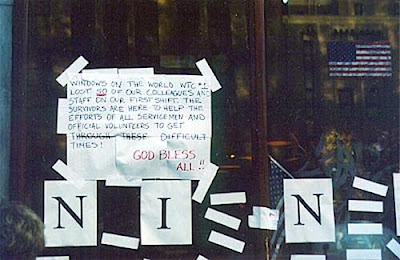 WINDOWS ON THE WORLD WTC #1
LOST OF OUR COLLEAGUES AND
STAFF ON OUR FIRST SHIFT. THE
SURVIVORS ARE HERE TO HELP THE
EFFORTS OF ALL SERVICEMEN AND
OFFICIAL VOLUNTEERS TO GET
THROUGH THESE DIFFICULT
TIMES!
GOD BLESS
ALL!!
N I N